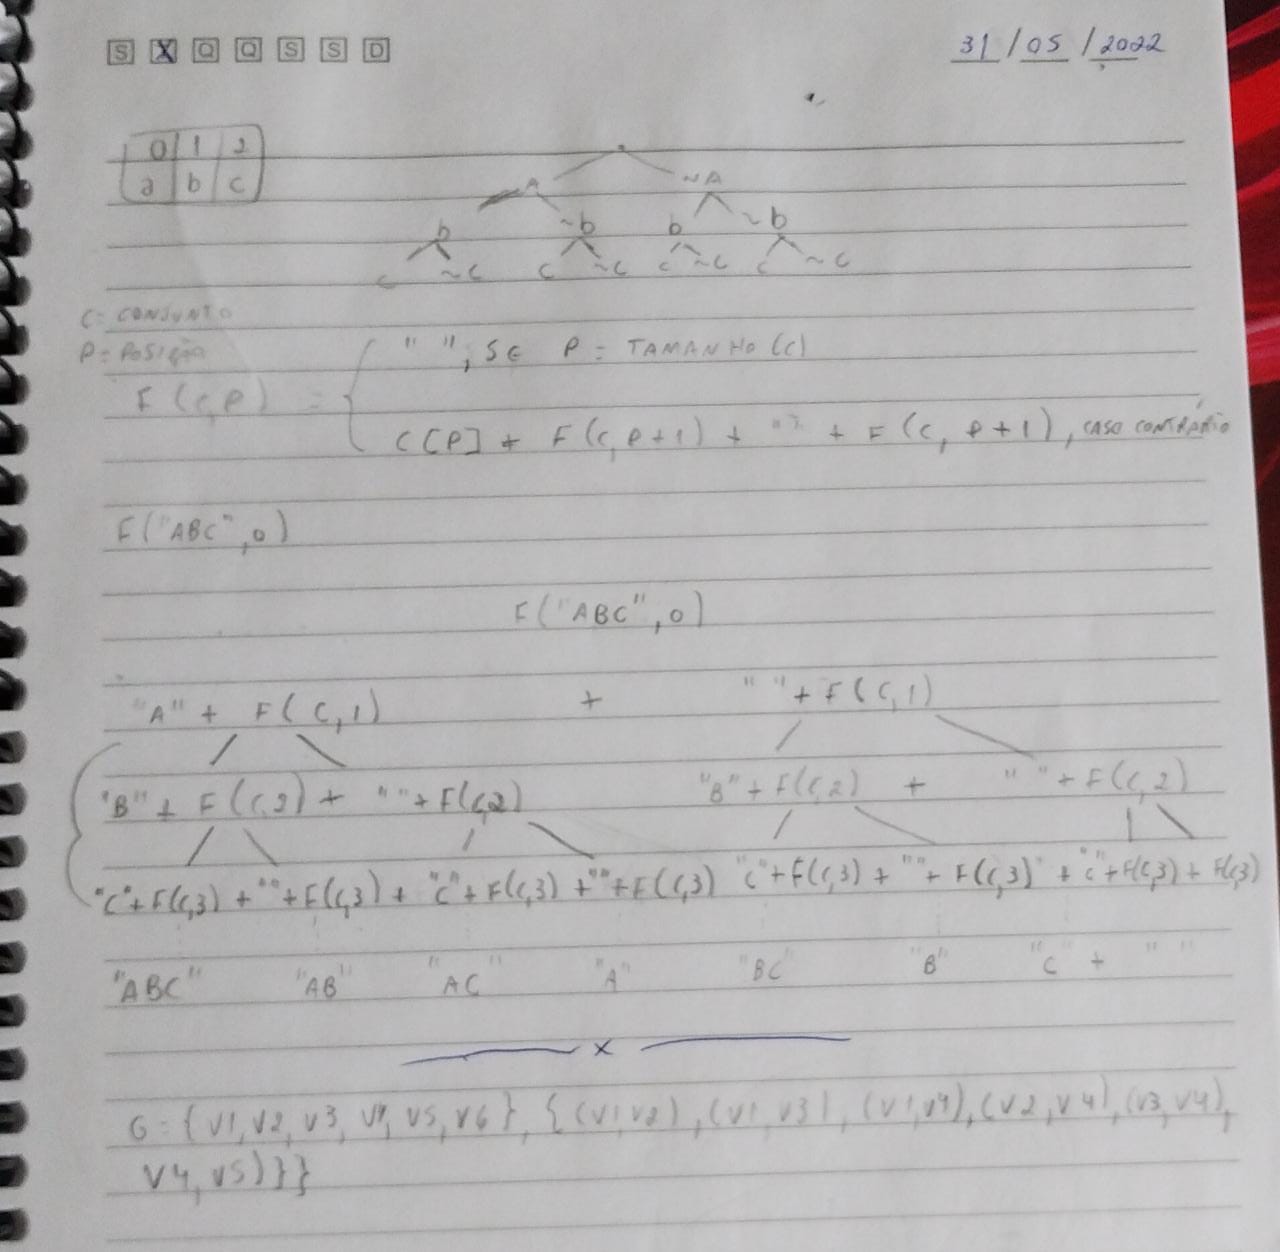 S X Q Q S S D
31 / 05 / 2022
0 1 2
a b c
A ~A
b ~b b ~b
c ~c c ~c c ~c c ~c
C = CONJUNTO
P = POSIÇÃO
" ", SE P = TAMANHO (C)
F (C, P) =
C[P] + F(C, P+1) + " " + F(C, P+1), CASO CONTRÁRIO
F("ABC", 0)
F("ABC", 0)
"A" + F(C,1) + " " + F(C,1)
"B" + F(C,2) + " " + F(C,2) "B" + F(C,2) + " " + F(C,2)
"C" + F(C,3) + " " + F(C,3) + "C" + F(C,3) + " " + F(C,3) "C" + F(C,3) + " " + F(C,3) + "C" + F(C,3) + F(C,3)
"ABC" "AB" "AC" "A" "BC" "B" "C" + " "
x
G = {V1, V2, V3, V4, V5, V6}, {(V1,V2), (V1,V3), (V1,V4), (V2,V4), (V3,V4),
V4, V5)}}